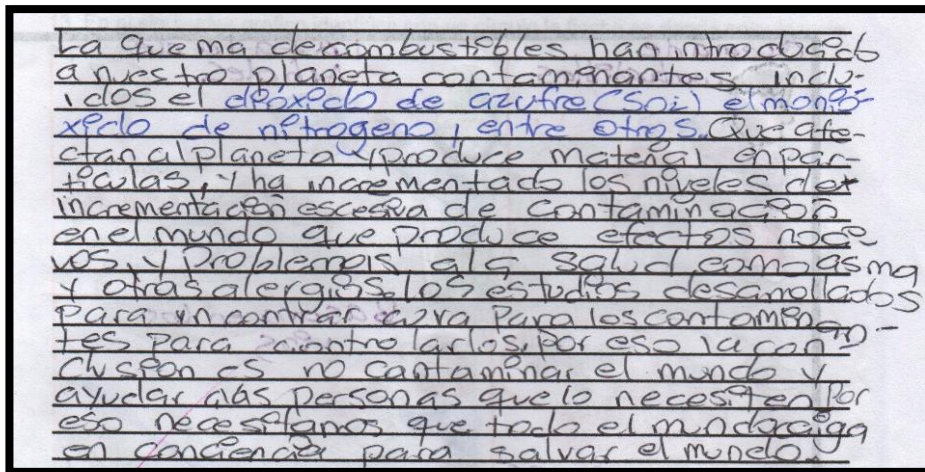 La quema decombustibles han introducido
a nuestro planeta contaminantes inclu-
idos el dióxido de azufre (SO2) el monó-
xido de nitrogeno, entre otros. Que afe-
ctan al planeta y produce material en par-
tículas, y ha incrementado los niveles de
incrementación escesiva de contaminación
en el mundo que produce efectos noci-
vos, y problemas a la salud como asma
y otras alergias. los estudios desarrollados
para incontrar cura para los contaminan-
tes para controlarlos, por eso la con-
clusión es no contaminar el mundo y
ayudar a las personas que lo necesiten Por
eso necesitamos que todo el mundo caiga
en conciencia para salvar el mundo.